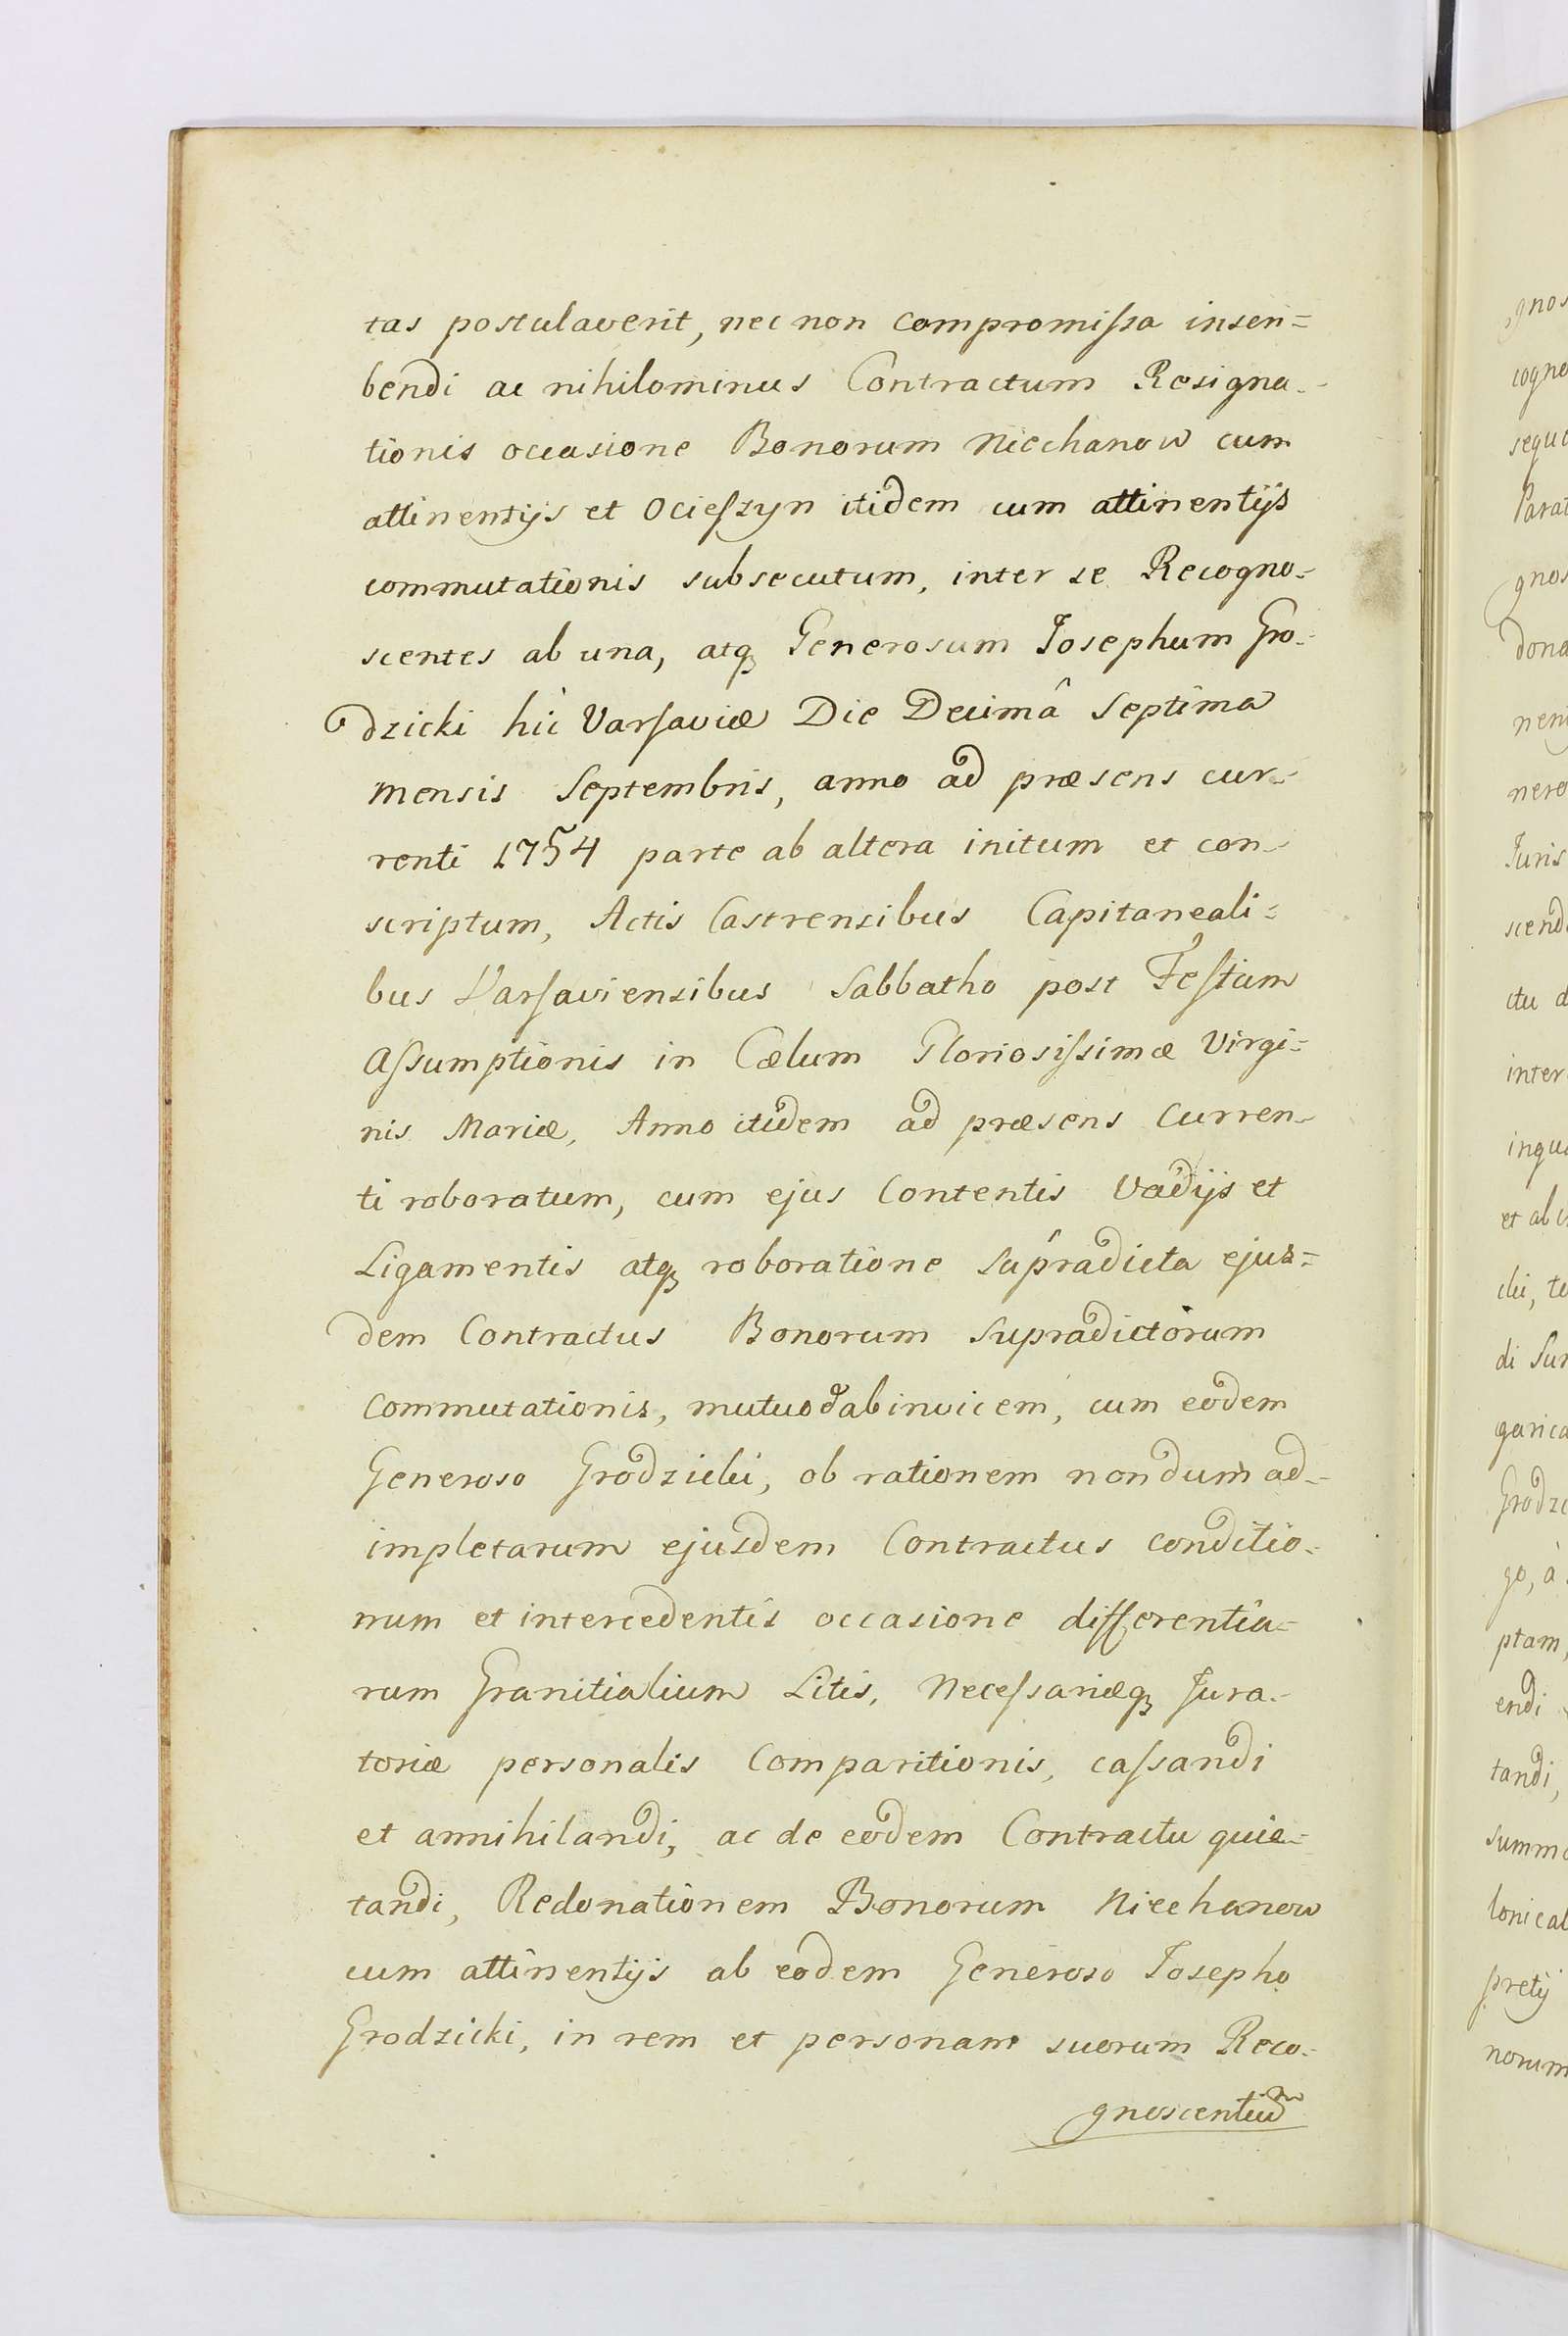 tas postulaverit, nec non compromiſsa inseri=
bendi ac nihilominus Contractum Resigna-
tionis occasione Bonorum Niechanow cum
attinentijs et Ocieſzyn itidem cum attinentijs
commutationis subsecutum, inter se Recogno-
scentes ab una, atq Generosum Josephum Gro-
dzicki hic Varſaviæ Die Decimâ Septima
mensis Septembris, anno ad præsens cur-
renti 1754 parte ab altera initum et con-
scriptum, Actis Castrensibus Capitaneali=
bus Varſaviensibus Sabbatho post Feſtum
Aſsumptionis in Cælum Gloriosiſsimæ Virgi=
nis Mariæ, Anno itidem ad præsens curren-
ti roboratum, cum ejus Contentis Vadijs et
Ligamentis atq roboratione supradicta ejus=
dem Contractus Bonorum supradictorum
Commutationis, mutuo ab invicem, cum eodem
Generoso Grodzicki, ob rationem nondum ad-
impletarum ejusdem Contractus conditio-
num et intercedentis occasione differentia-
rum Granitialium Litis, Neceſsariæq Jura-
toriæ personalis Comparitionis, caſsandi
et annihilandi, ac de eodem Contractu quie-
tandi, Redonationem Bonorum Niechanow
cum attinentijs ab eodem Generoso Josepho
Grodzicki, in rem et personam suorum Reco-
gnoscentium
gnos
cogno
Parat
gnos
dona
nero
Juris
scend
ctu d
inter
et ab
di Sur
Grodz
go, à
ptam,
endi
tandi,
summ
pretij
norum